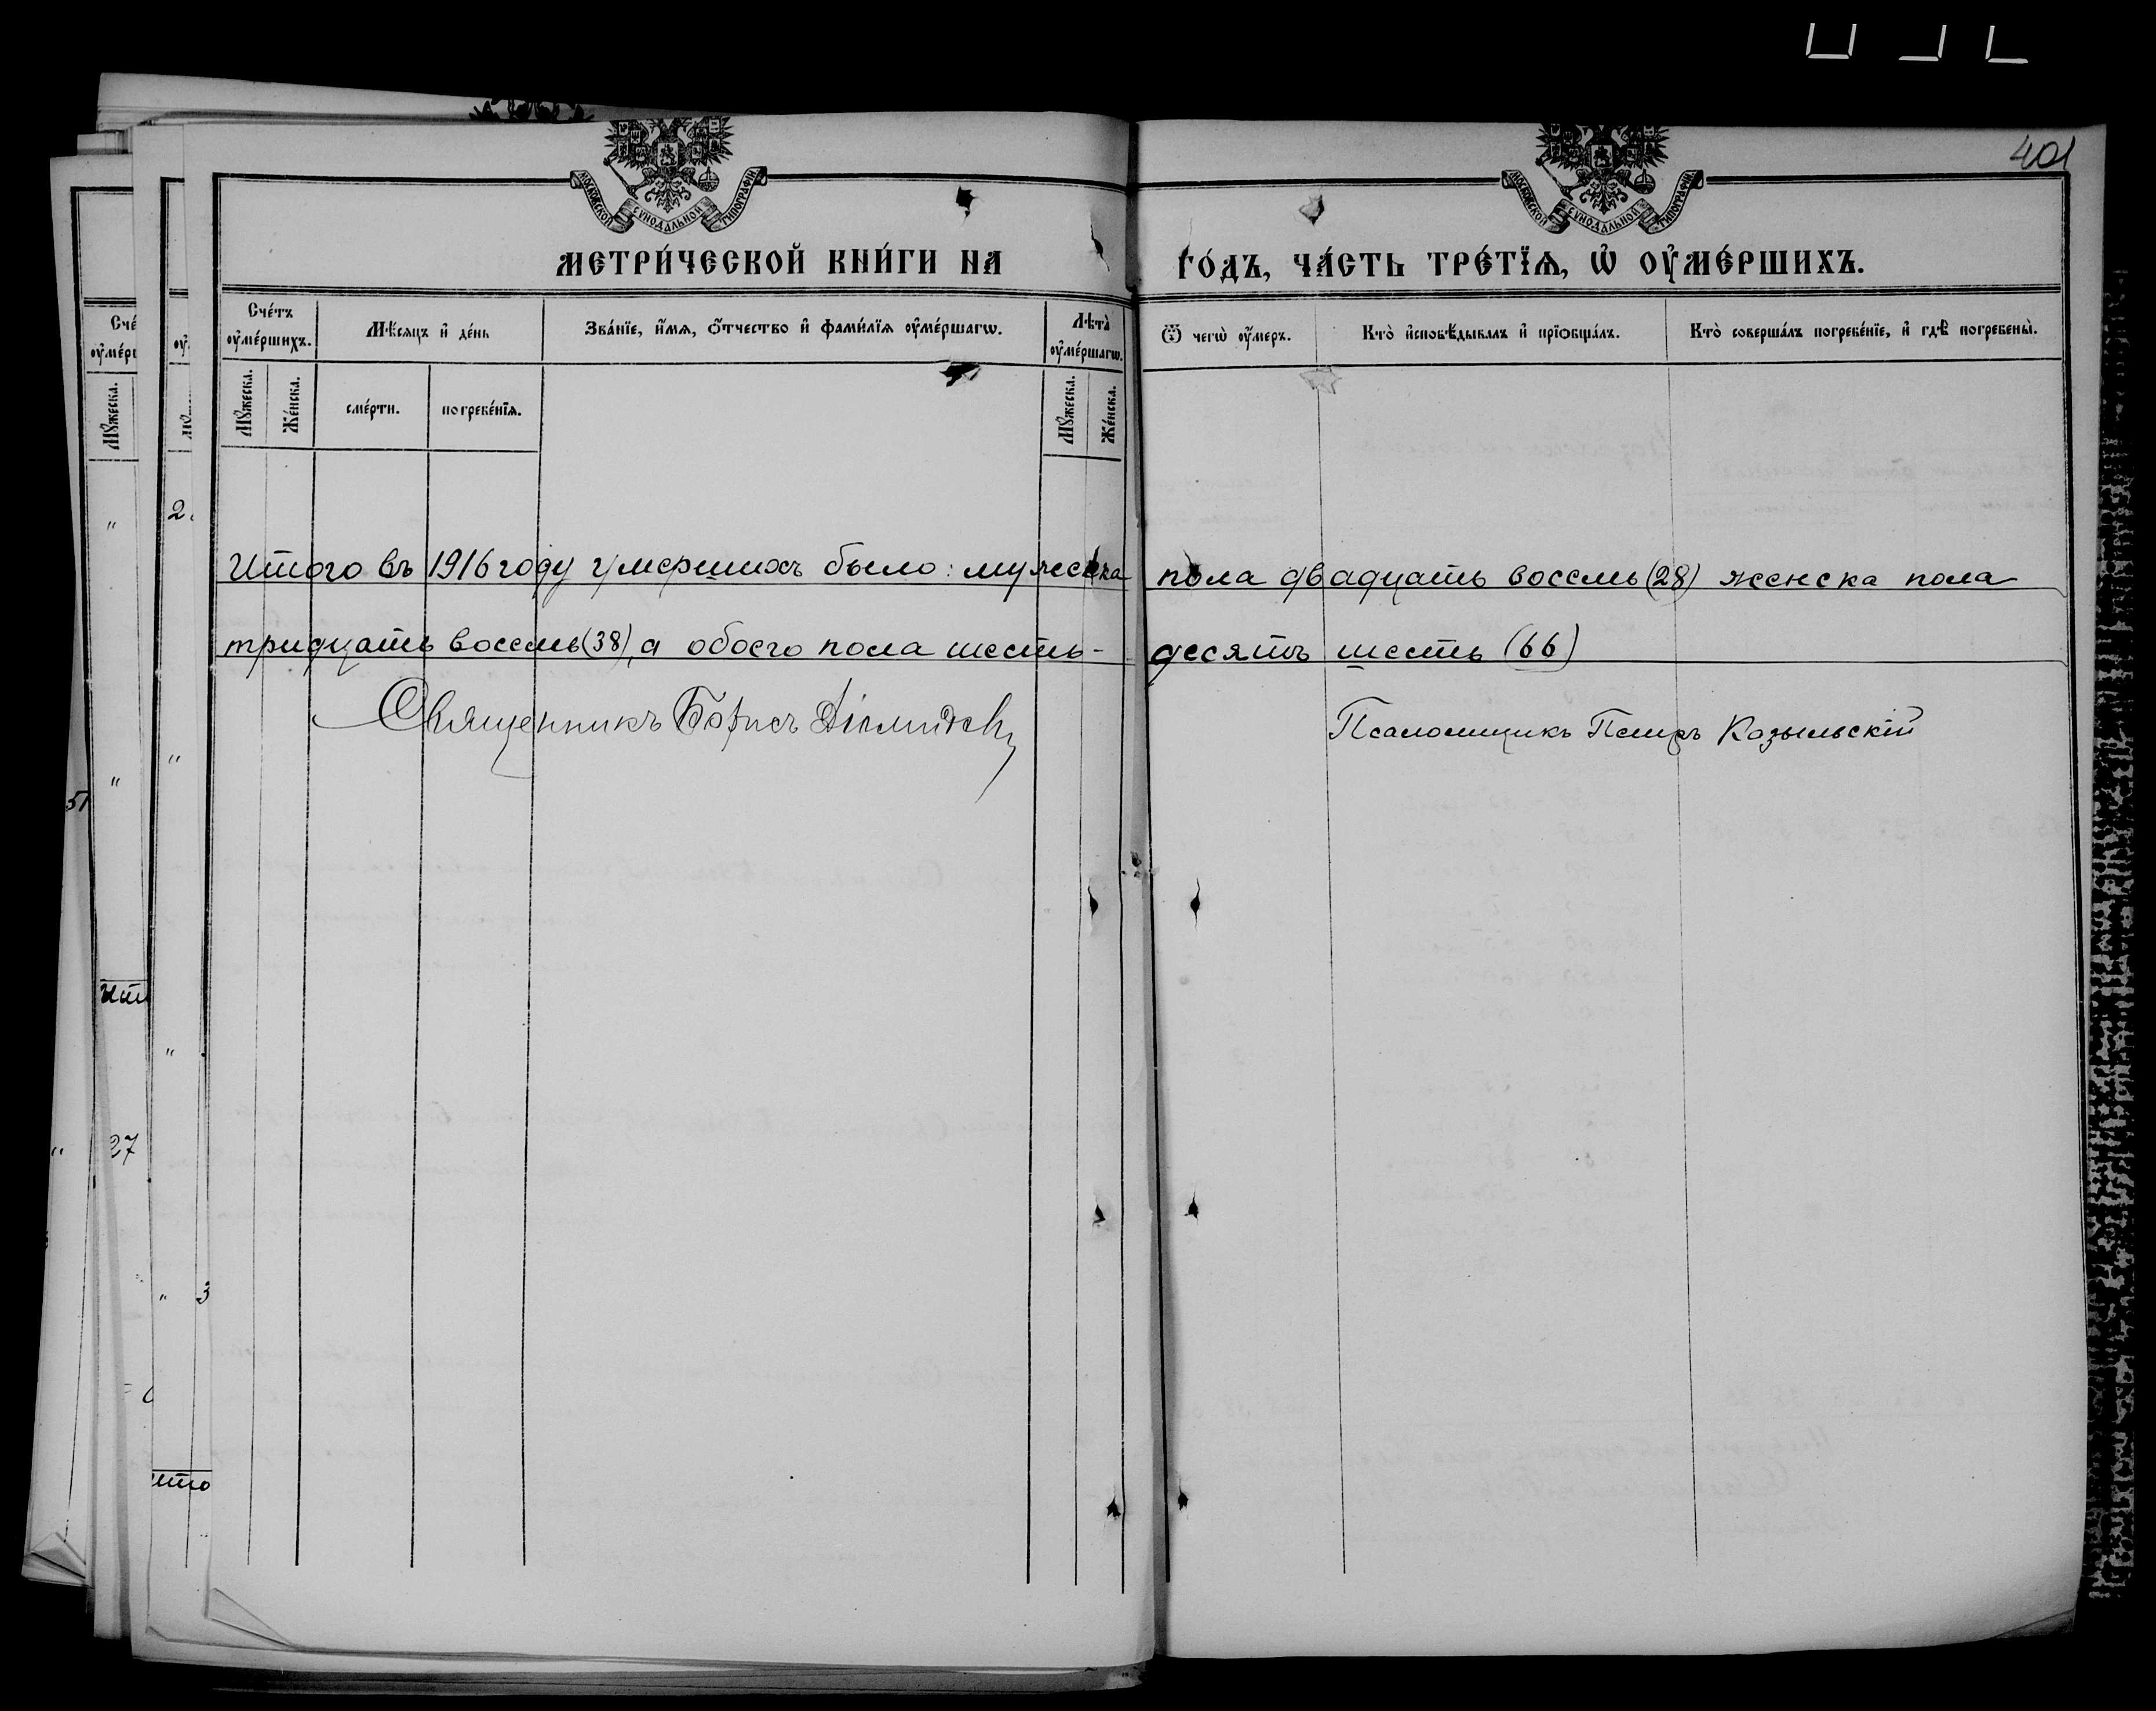 401
МОСКОВСКОЙ СУНОДАЛЬНОЙ ТИПОГРАФІИ
МОСКОВСКОЙ СУНОДАЛЬНОЙ ТИПОГРАФІИ
МЕТРИ́ЧЕСКОЙ КНИ́ГИ НА ГО́ДЪ, ЧА́СТЬ ТРЕ́ТЇѦ, Ѡ҆ ОУ҆МЕ́РШИХЪ.
Сче́тъ оу҆ме́ршихъ.
Мѣ́сяцъ и҆ де́нь
Зва́нїе, и҆́мѧ, ѻ҆́тчество и҆ фами́лїѧ оу҆ме́ршагѡ.
Лѣ́та̀ оу҆ме́ршагѡ.
Ѿ чегѡ̀ оу҆́меръ.
Кто̀ и҆сповѣ́дывалъ и҆ прїѡбща́лъ.
Кто̀ соверша́лъ погребе́нїе, и҆ гдѣ̀ погребены̀.
Мꙋ́жеска.
Же́нска.
сме́рти.
погребе́нїѧ.
Мꙋ́жеска.
Же́нска.
Итого въ 1916 году умершихъ было: мужеска пола двадцать восемь (28) женска пола
тридцать восемь (38), а обоего пола шесть-десятъ шесть (66)
Священникъ Борисъ
Псаломщикъ Петръ Козыльскій
27